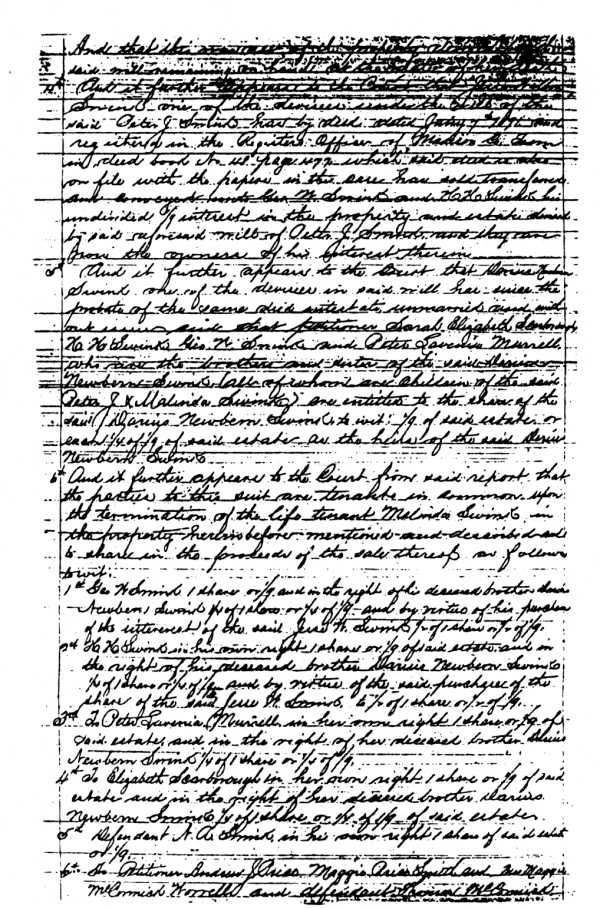 And that the
said mill remaining on hand
4th And it further appears to the Court that Jesse
Swink one of the devisees under the will of the
said Peter J. Swink has by deed dated Jan'y 7th 1871 and
registered in the Registers Office of Madison Co Tenn
in deed book No page which said deed is also
on file with the papers in the case has sold transferred
and conveyed Geo W. Swink and H H Swink his
undivided 1/9 interest in the property and estate devised
by said will of Peter J. Swink and they are
now the owners of his interest therein
5th And it further appears to the Court that Darius Newbern
Swink one of the devisees in said will has since the
probate of the same died intestate, unmarried and with
out issue and that petitioner Sarah Elizabeth Scarborough
H H Swink Geo. W. Swink and Peter Lavenia Murrell
who are the brothers and sister of the said Darius
Newbern Swink (all of whom are children of the said
Peter J & Malinda Swink) are entitled to the share of the
said Darius Newbern Swink to wit: 1/9 of said estate or
each 1/4 of 1/9 of said estate as the heirs of the said Darius
Newbern Swink
6th And it further appears to the Court from said report that
the parties to this suit are tenants in common upon
the termination of the life tenant Malinda Swink in
the property hereinbefore mentioned and described and
to share in the proceeds of the sale thereof as follows
to wit:
1st Geo W Swink 1 share or 1/9 and in the right of his deceased brother Darius
Newbern Swink 1/4 of 1 share or 1/4 of 1/9 and by virtue of his purchase
of the interest of the said Jesse W. Swink 1/2 of 1 share or 1/2 of 1/9.
2nd H H Swink in his own right 1 share or 1/9 of said estate and in
the right of his deceased brother Darius Newbern Swink
1/4 of 1 share or 1/4 of 1/9 and by virtue of the said purchase of the
share of the said Jesse W. Swink 1/2 of 1 share or 1/2 of 1/9.
3rd To Peter Lavenia Murrell in her own right 1 share or 1/9 of
said estate, and in the right of her deceased brother Darius
Newbern Swink 1/4 of 1 share or 1/4 of 1/9.
4th To Elizabeth Scarborough in her own right 1 share or 1/9 of said
estate and in the right of her deceased brother Darius
Newbern Swink 1/4 of 1 share or 1/4 of 1/9 of said estate.
5th Defendant N. A. Swink in his own right 1 share of said estate
or 1/9.
6th To Petitioner Andrew J. Price Maggie Price Smith and Maggie
McCormick Worrell and defendant Thomas McCormick